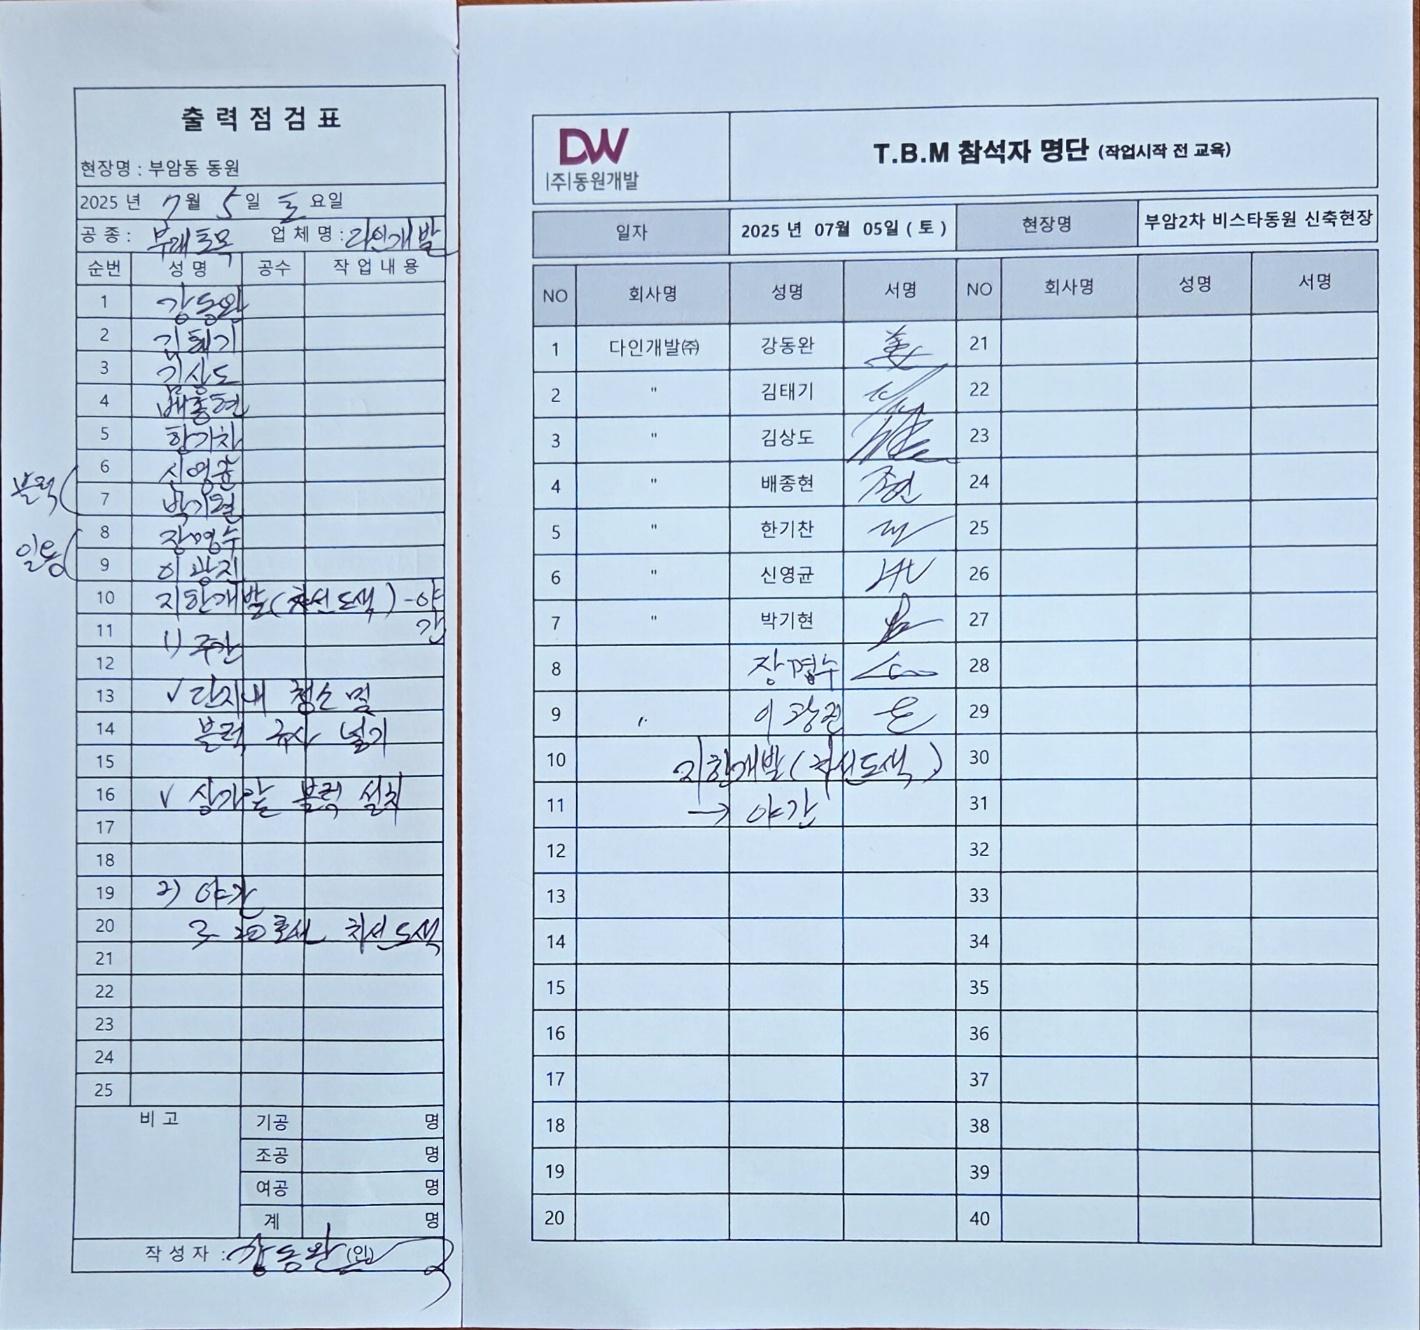 출력점검표
현장명 : 부암동 동원
2025 년 7월 5일 토요일
공 종 : 부대토목 업 체 명 : 다인개발
순번 성 명 공수 작 업 내 용
1 강동완
2 김태기
3 김상도
4 배종현
5 한기찬
6 신영균
블럭
7 박기현
8 장명수
일용
9 이광진
10 지한개발(차선도색)-야간
11 1) 주간
12
13 ✓ 단지내 청소 및
14 블럭 규사 넣기
15
16 ✓ 상가앞 블럭 설치
17
18
19 2) 야간
20 차선도색
21
22
23
24
25
비 고
기공 명
조공 명
여공 명
계 명
작 성 자 : 강동완 (인)
DW
(주)동원개발
T.B.M 참석자 명단 (작업시작 전 교육)
일자 2025 년 07월 05일 ( 토 ) 현장명 부암2차 비스타동원 신축현장
NO 회사명 성명 서명 NO 회사명 성명 서명
1 다인개발㈜ 강동완 21
2 " 김태기 22
3 " 김상도 23
4 " 배종현 종현 24
5 " 한기찬 25
6 " 신영균 26
7 " 박기현 27
8 장명수 28
9 " 이광진 29
10 지한개발(차선도색) 30
11 → 야간 31
12 32
13 33
14 34
15 35
16 36
17 37
18 38
19 39
20 40